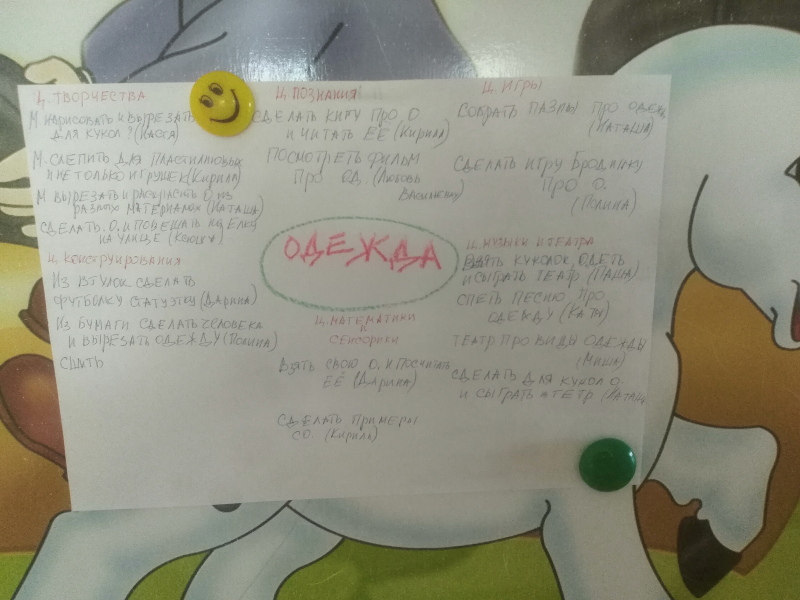 Ц. ТВОРЧЕСТВА
М НАРИСОВАТЬ И ВЫРЕЗАТЬ
ДЛЯ КУКОЛ
М. СЛЕПИТЬ ДЛЯ ПЛАСТИЛИНОВЫХ
И НЕ ТОЛЬКО ИГРУШЕК (КИРИЛЛ)
М ВЫРЕЗАТЬ И РАСКРАСИТЬ О. ИЗ
РАЗНЫХ МАТЕРИАЛОВ (НАТАША)
СДЕЛАТЬ О. И ПОВЕШАТЬ НА ЁЛКУ
НА УЛИЦЕ (КСЮША)
Ц. КОНСТРУИРОВАНИЯ
ИЗ ВТУЛОК СДЕЛАТЬ
ФУТБОЛКУ СТАТУЭТКУ (ДАРИНА)
ИЗ БУМАГИ СДЕЛАТЬ ЧЕЛОВЕКА
И ВЫРЕЗАТЬ ОДЕЖДУ (ПОЛИНА)
СШИТЬ
Ц. ПОЗНАНИЯ
СДЕЛАТЬ КНИГУ ПРО О.
И ЧИТАТЬ ЕЁ (КИРИЛЛ)
ПОСМОТРЕТЬ ФИЛЬМ
ПРО ОД. (ЛЮБОВЬ
ОДЕЖДА
Ц. МАТЕМАТИКИ
И
СЕНСОРИКИ
ВЗЯТЬ СВОЮ О. И ПОСЧИТАТЬ
ЕЁ (ДАРИНА)
СДЕЛАТЬ ПРИМЕРЫ
СО. (КИРИЛЛ)
Ц. ИГРЫ
СОБРАТЬ ПАЗЛЫ ПРО ОДЕЖД
(НАТАША)
СДЕЛАТЬ ИГРУ БРОДИЛКУ
ПРО О.
(ПОЛИНА)
Ц. МУЗЫКИ И ТЕАТРА
ВЗЯТЬ КУКОЛОК, ОДЕТЬ
И СЫГРАТЬ ТЕАТР (ПАША)
СПЕТЬ ПЕСНЮ ПРО
ОДЕЖДУ (КАТЯ)
ТЕАТР ПРО ВИДЫ ОДЕЖДЫ
(МИША)
СДЕЛАТЬ ДЛЯ КУКОЛ О.
И СЫГРАТЬ